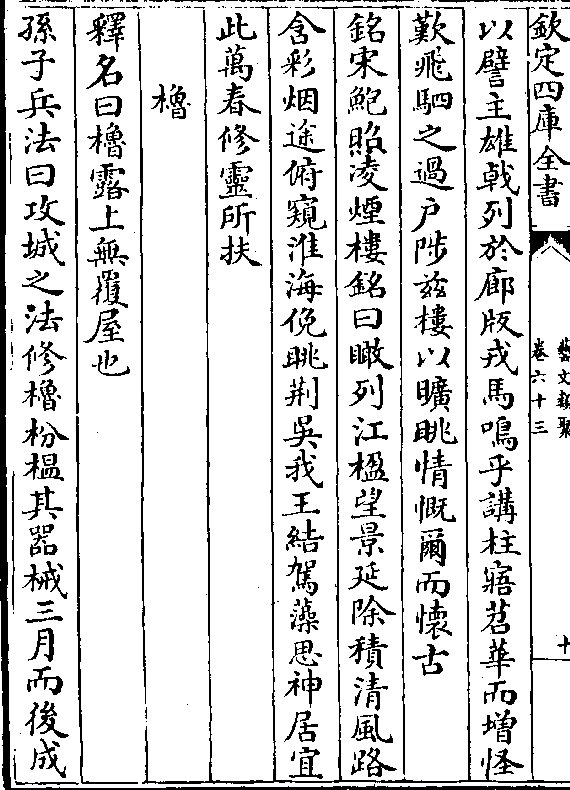 欽定四庫全書
藝文類聚
卷六十三
十
以譬主雄戟列於廊版戎馬鳴乎講柱寤苕華而増怪
歎飛駟之過户陟兹樓以曠眺情慨爾而懷古
銘宋鮑照凌煙樓銘曰瞰列江楹望景延除積清風路
含彩烟途俯窺淮海俛眺荆吳我王結駕藻思神居宜
此萬春修靈所扶
櫓
釋名曰櫓露上無覆屋也
孫子兵法曰攻城之法修櫓枌榅其器械三月而後成